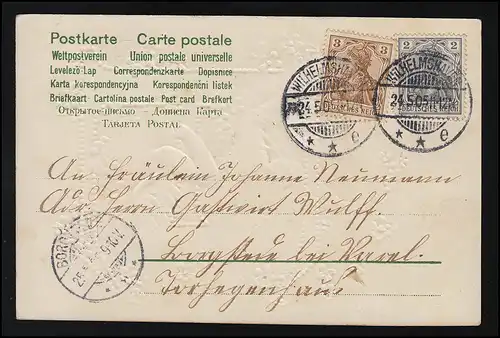 Postkarte Carte postale
Weltpostverein Union postale universelle
Levelező-Lap Correspondenzkarte Dopisnice
Karta korespondencyjna Korespondenční listek
Briefkaart Cartolina postale Post card Brefkort
Открытое письмо Дописна Карта
TARJETA POSTAL
3
3
2
2
WILHELMSHAVEN
24.5.05
WILHELMSHAVEN
24.5.05
DEUTSCHES REICH
DEUTSCHES REICH
An Fräulein Johanne Neumann
Adr. Herrn Gastwirt Wulff.
Borgstede bei Varel.